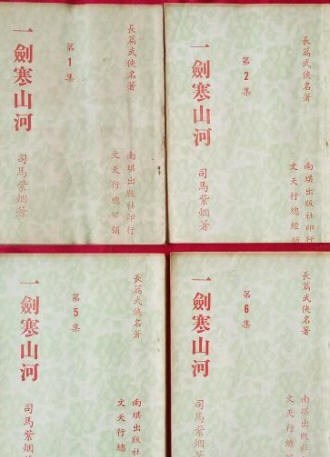 長篇武俠名著
第1集
一劍寒山河
司馬紫烟著
南琪出版社印行
文天行總經銷
長篇武俠名著
第2集
一劍寒山河
司馬紫烟著
南琪出版社印行
文天行總經銷
長篇武俠名著
第5集
一劍寒山河
司馬紫烟著
南琪出版社
文天行總
長篇武俠名著
第6集
一劍寒山河
司馬紫烟著
南琪出版社
文天行總